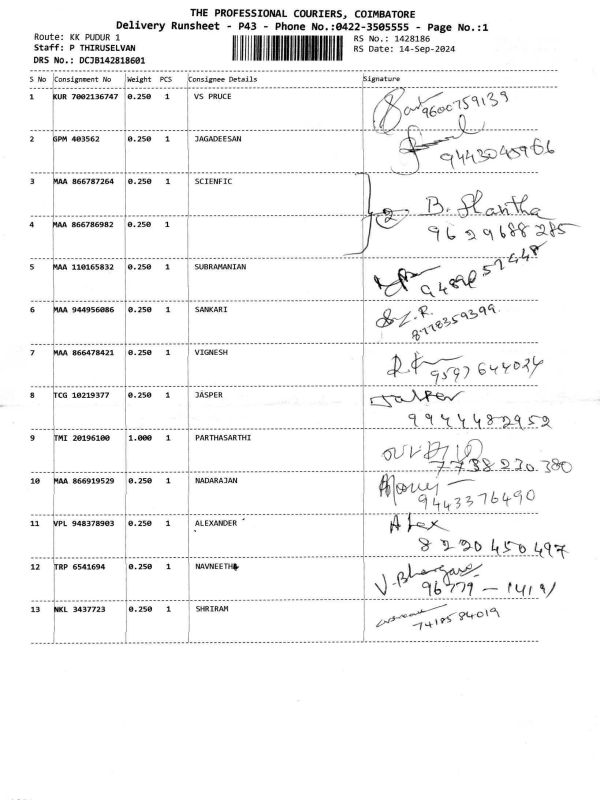 THE PROFESSIONAL COURIERS, COIMBATORE
Delivery Runsheet - P43 - Phone No.:0422-3505555 - Page No.:1
Route: KK PUDUR 1 RS No.: 1428186
Staff: P THIRUSELVAN RS Date: 14-Sep-2024
DRS No.: DCJB142818601
S No Consignment No Weight PCS Consignee Details Signature
1 KUR 7002136747 0.250 1 VS PRUCE 9600759139
2 GPM 403562 0.250 1 JAGADEESAN
3 MAA 866787264 0.250 1 SCIENFIC B. Shantha
4 MAA 866786982 0.250 1 2 9629688285
5 MAA 110165832 0.250 1 SUBRAMANIAN
6 MAA 944956086 0.250 1 SANKARI
8778359399
7 MAA 866478421 0.250 1 VIGNESH 9597644024
8 TCG 10219377 0.250 1 JASPER
9944482952
9 TMI 20196100 1.000 1 PARTHASARTHI
7738230380
10 MAA 866919529 0.250 1 NADARAJAN
9443376490
11 VPL 948378903 0.250 1 ALEXANDER Alex
8220450497
12 TRP 6541694 0.250 1 NAVNEETHA
96779 - 14191
13 NKL 3437723 0.250 1 SHRIRAM
7418584019